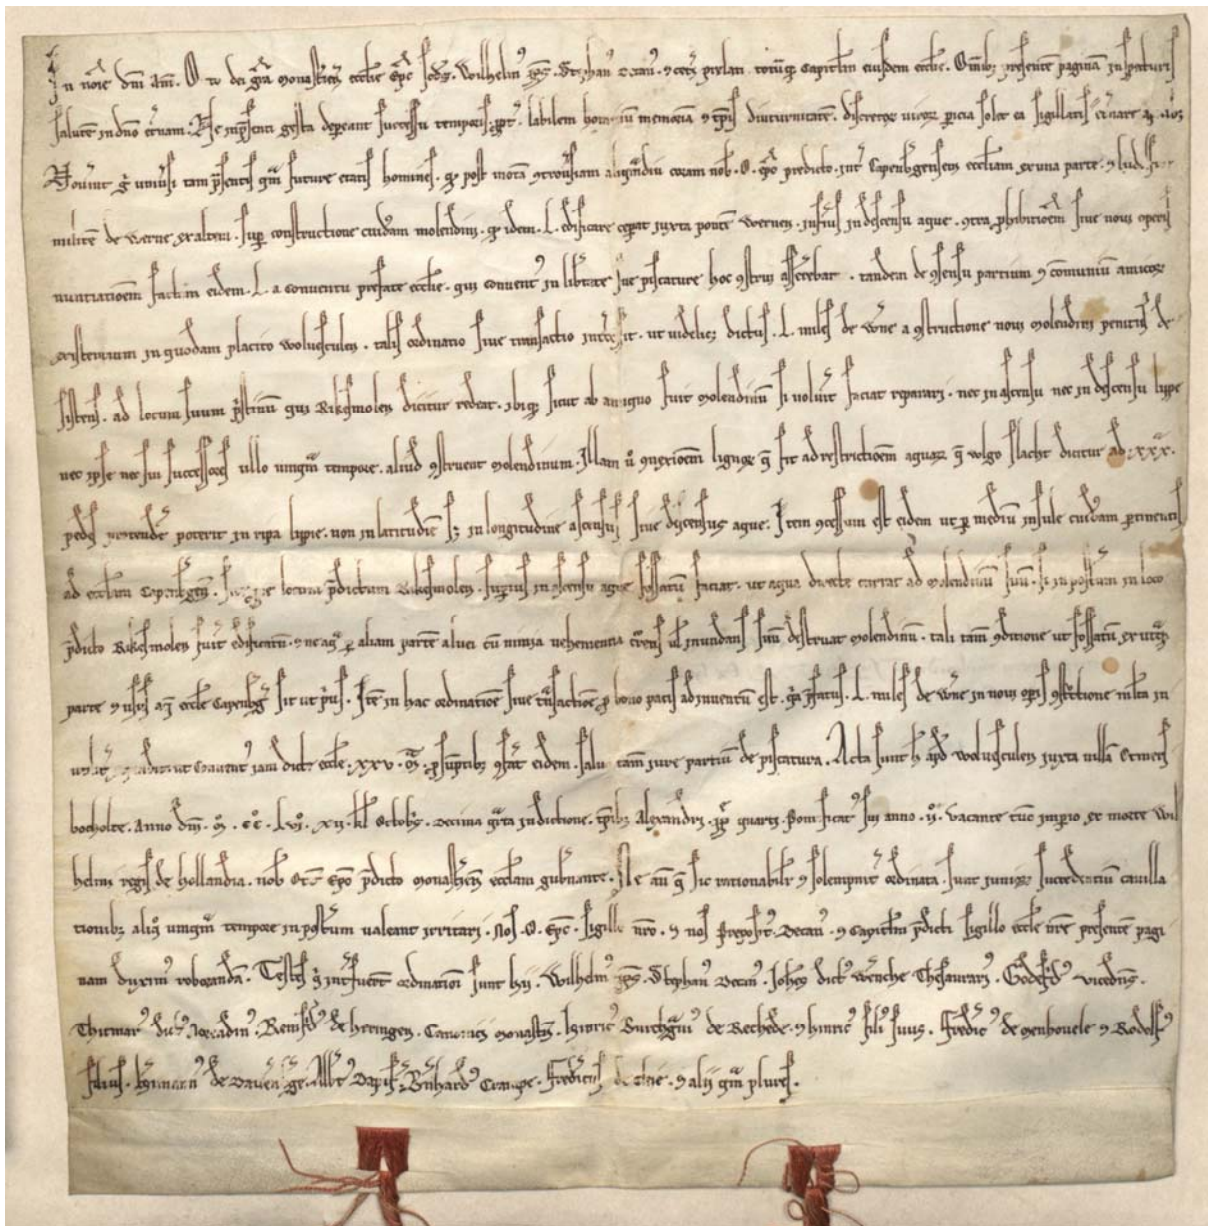 In noie dni am. Otto dei gra Monastien ecclie epc scds. Wilhelm pps. Stephan decan. 9 ceti prelati totuq capitlm eiusdem ecclie. Omibz presente pagina inspecturis
salute in dno etnam. Ne in psenti gesta depeant successu temporis. ppt labilem hominum memoriam 9 tpris diuturnitate. discretor uiror pericia solet ea sigillatis
Nouint g uniusi tam psentis qm future etatis homines. qd post mota 9trousiam aliqmdiu coram nob. O. epo predicto. int Capenbgensem eccliam ex una parte. 9
milite de Werne ex altera. sup constructione cuidam molendini. qd idem. L. edificare ceperat juxta ponte Wernen. infius in descensu aque. 9tra phibitioem siue noui operis
nuntiatioem factam eidem. L. a conuentu prefate ecclie. qui conuent in libtate sue piscature hoc 9struı asserebat. tandem de 9sensu partium 9 comuniu amicor
existentium in quodam placito Woluesculen. talis ordinatio siue transactio ut uidelicz dictus. L. miles de Wne a 9structione noui molendini penitus de
sistens. ad locum suum pstinu qui Rikesmolen dicitur redeat. ibiq sicut ab antiquo fuit molendinu si uoluit faciat reparari. nec in ascensu nec in descensu lippe
nec ipse nec sui successores ullo umqm tempore. aliud 9struent molendinum. Illam u 9nexioem lignor q fit ad restrictioem aquar q uulgo slacht dicitur ad. xxx.
pedes extende poterit in ripa lippie. non in latitudie sz in longitudine ascensus siue descensus aque. Item 9cessum est eidem ut p mediu insule cuidam ptinentis
ad eccliam Capenbgen. locum pdictum Rikesmolen. supius in ascensu aque fossatu faciat. ut aqua directe currat ad molendinu suu. si in postum in loco
pdicto Rikesmolen fuit edificatu. 9 ne aq p aliam parte aluei cu nimia uehementia crens ul inundans suu destruat molendinu. tali tam 9ditione ut fossatu ex utq
parte 9 insula ecclie Capenbg sit ut pus. Ite in hac ordinatioe siue tnsactioe p bono pacis adinuentu est. qa pfatus. L. miles de Wne in noui opis 9stctione mlta in
conuent jam dicte ecclie. xxv. m. p suptibz eidem. saluo tam iure partiu de piscatura. Acta sunt h apd Woluesculen juxta uilla Ermeth
bocholte. Anno dni. m. cc. lvi. xii. kl Octobr. decima qrta indictione. tpribz Alexandri. pp quarti. Pontificat sui anno. ii. Vacante tuc imperio ex morte Wil
helmi regis de hollandia. nob Otto Epo pdicto Monastien eccliam gubnante. Ne au q sic rationabilr 9 solempnit ordinata. sunt iuniorum succedentiu cauilla
tionibz aliq umqm tempore in postum ualeant irritari. Nos. O. Epc. sigillo nro. 9 nos preposit. decan. 9 capitlm pdicti sigillo ecclie nre presente pagi
nam duxim roboranda. Testes q intfuert ordinatioi sunt hii. Wilhelm pps. Stephan decan. Johes dict Wenche Thesaurari. Godefrid vicedns.
Thitmar dict Remfrid de heringen. Canonici Monastn. hinric Burchgui de Rechede. 9 hinric fili suus. Fredic de Menhouele 9 Rodolf
filius. hmann de Dauensbge. Albt dapif. Bnhard Crampe. Fredicus 9 alii qm plures.